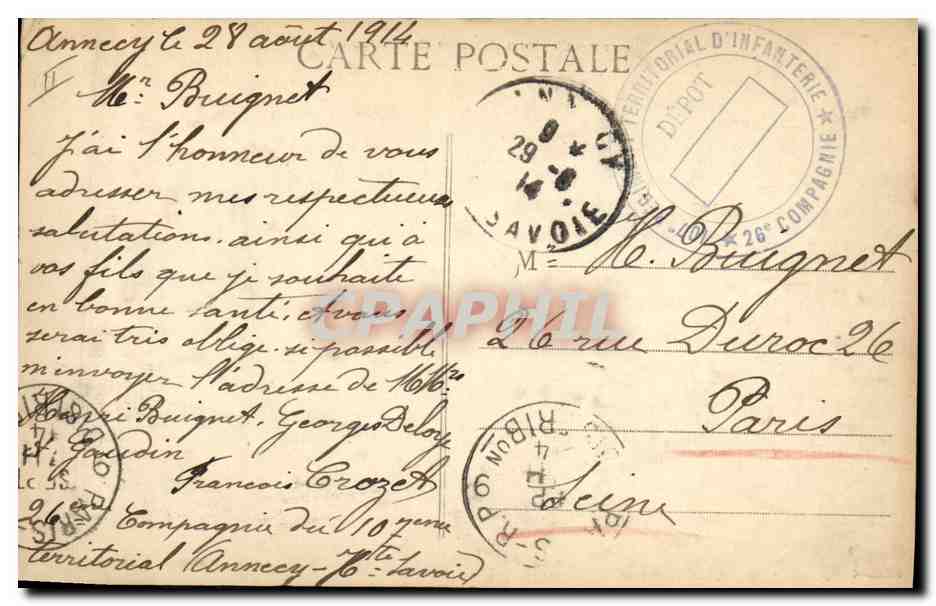 Annecy le 28 août 1914
CARTE POSTALE
Mr. Buignet
J'ai l'honneur de vous
adresser mes respectueuses
salutations, ainsi qu'a
vos fils que je souhaite
en bonne santé, et vous
serai très obligé, si possible
m'envoyer l'adresse de M.Mrs
Henri Buignet, Georges Deloye
et Gaudin
François Crozet
26e Compagnie du 107eme
territorial (Annecy-Hte Savoie)
TERRITORIAL D'INFANTERIE ★ 26e COMPAGNIE ★ 107e
DÉPOT
ANNECY
29 -8
14
SAVOIE
M M. Buignet
26 rue Duroc 26
Paris
Seine
CPAPHIL
PARIS